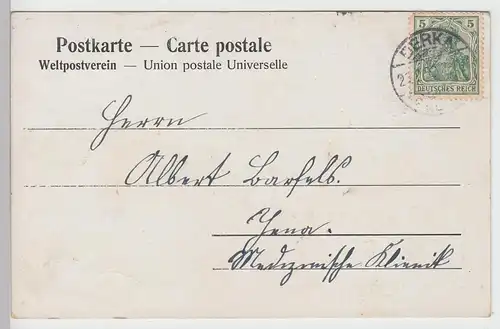 Postkarte — Carte postale
Weltpostverein — Union postale Universelle
5 5
DEUTSCHES REICH
BERKA
Herrn
Albert Barfels.
Jena.
Medizinische Klienik